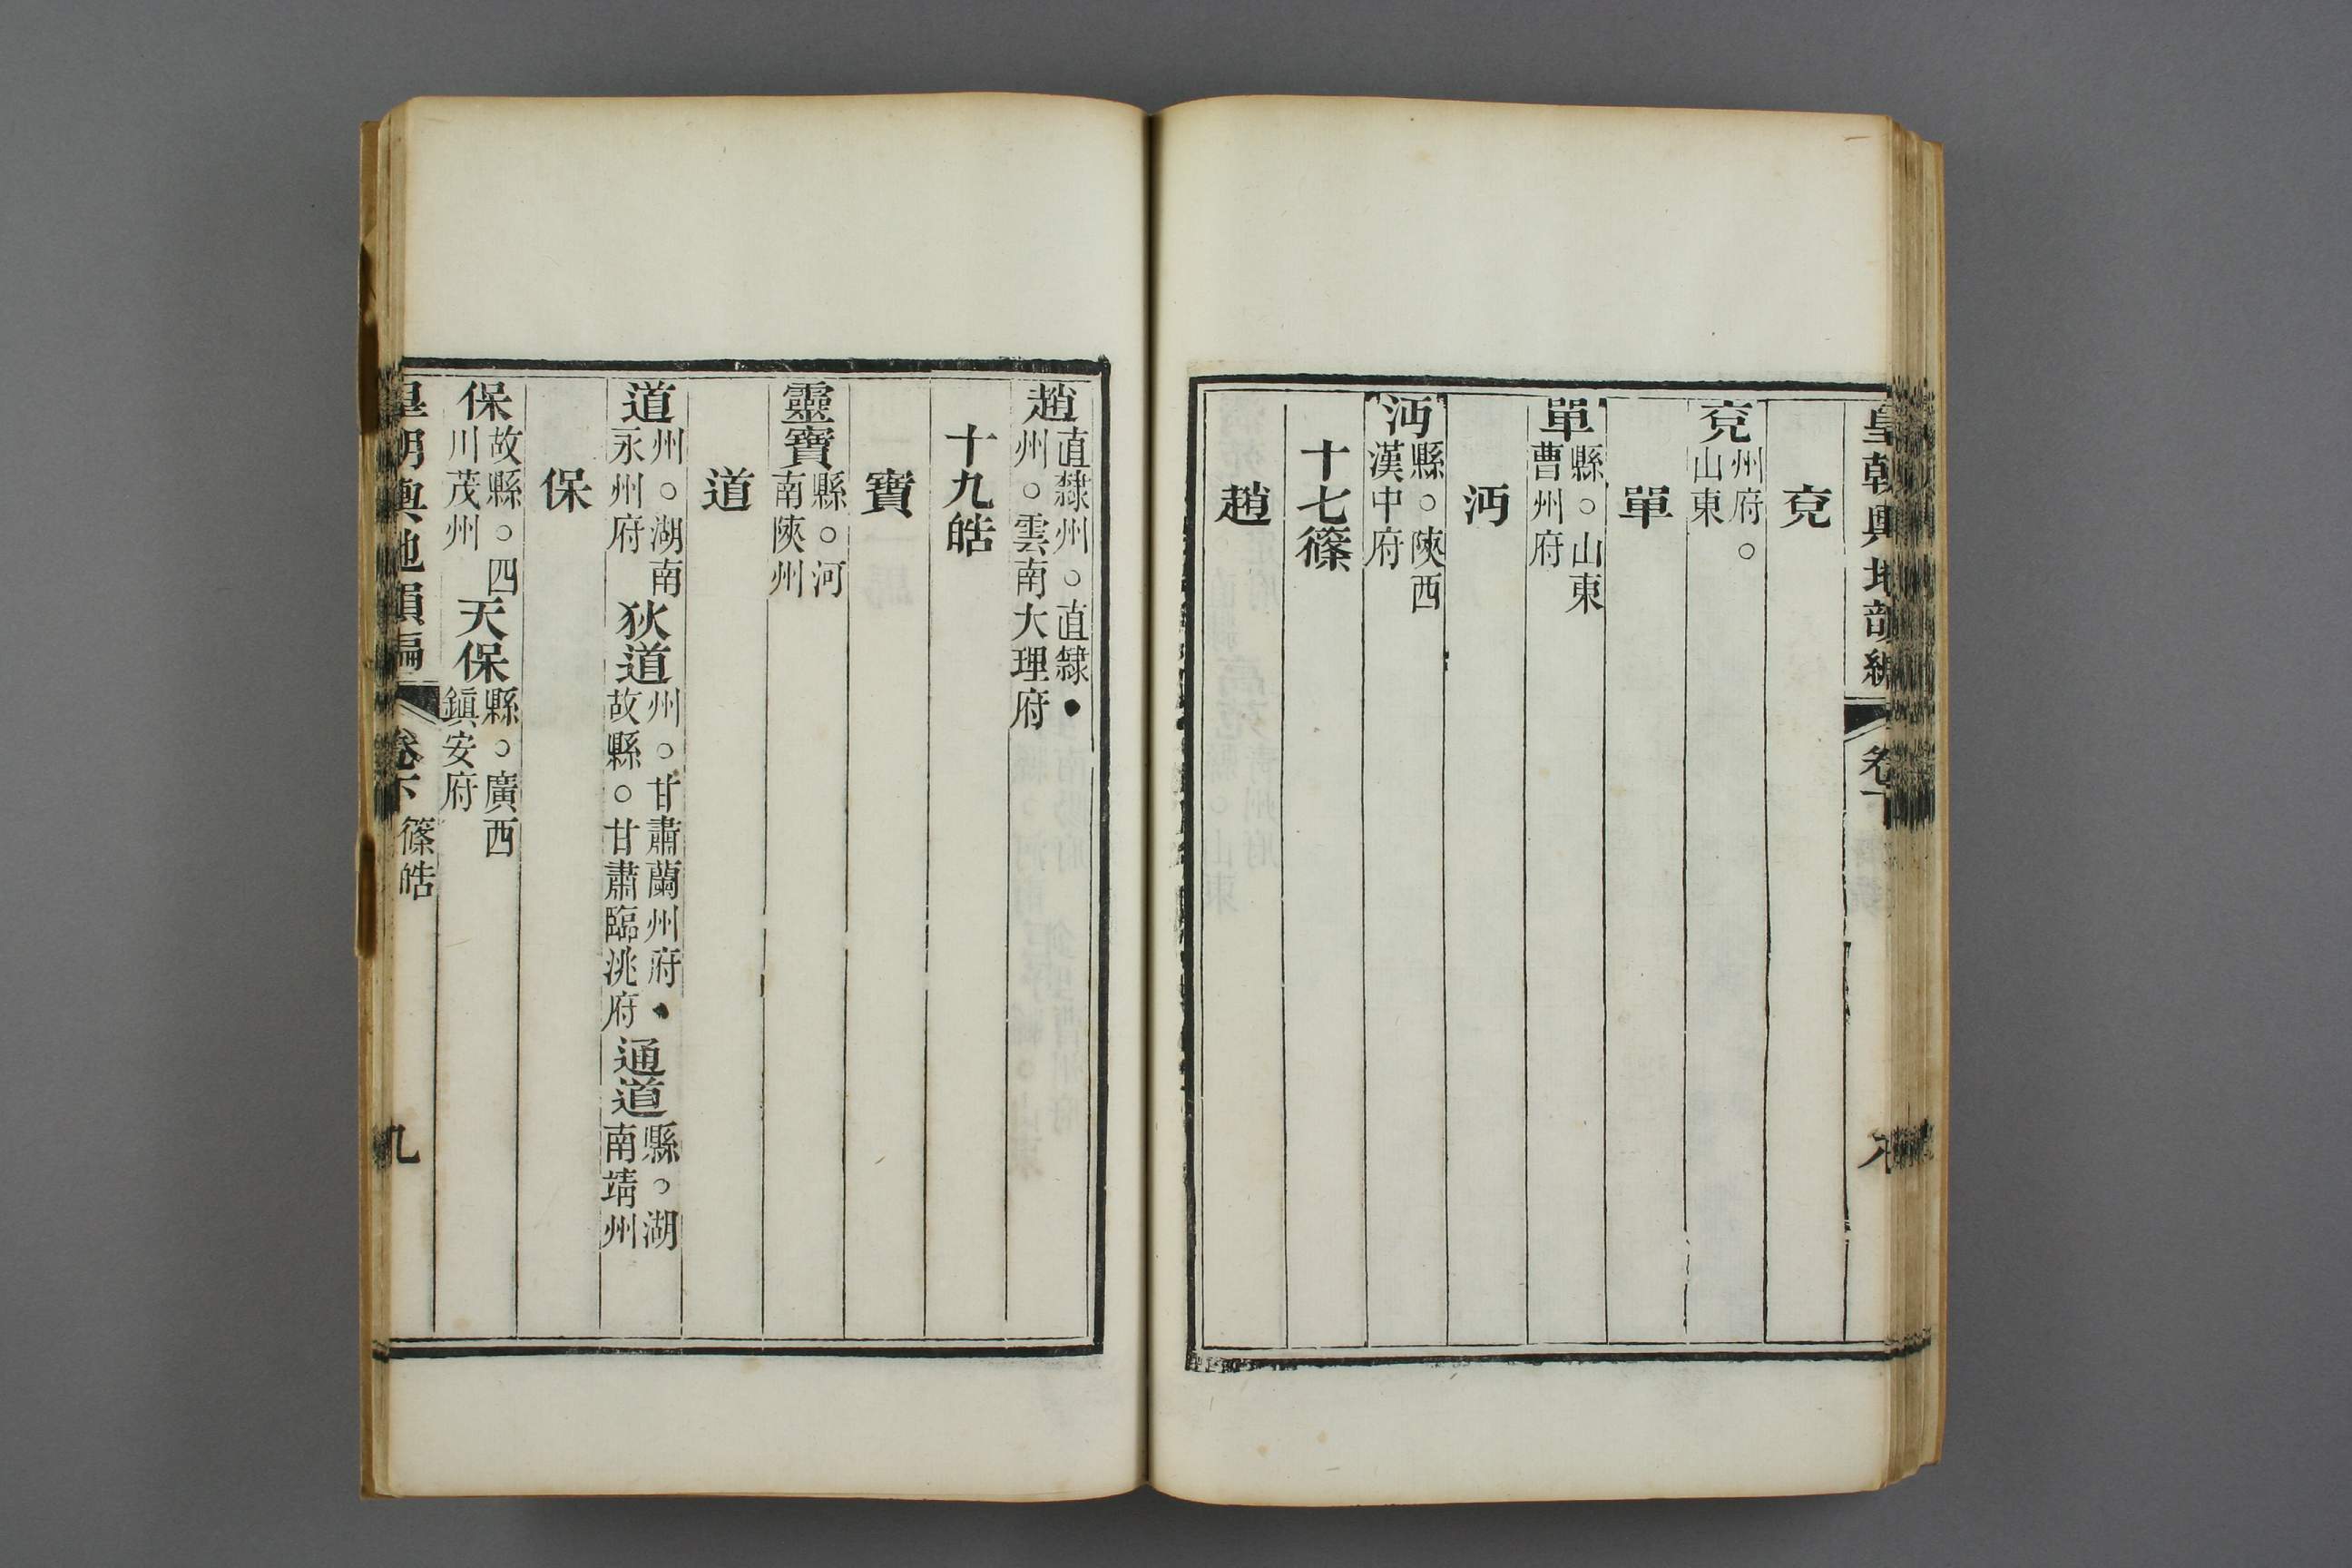 皇朝輿地韻編 卷下 八
兗
兗州府。山東
單
單縣。山東曹州府
沔
沔縣。陝西漢中府
十七篠
趙
趙直隸州。直隸●州。雲南大理府
十九皓
寶
靈寶縣。河南陝州
道
道州。湖南永州府 狄道州。甘肅蘭州府●故縣。甘肅臨洮府 通道縣。湖南靖州
保
保故縣。四川茂州 天保縣。廣西鎮安府
皇朝輿地韻編 卷下 篠皓 九